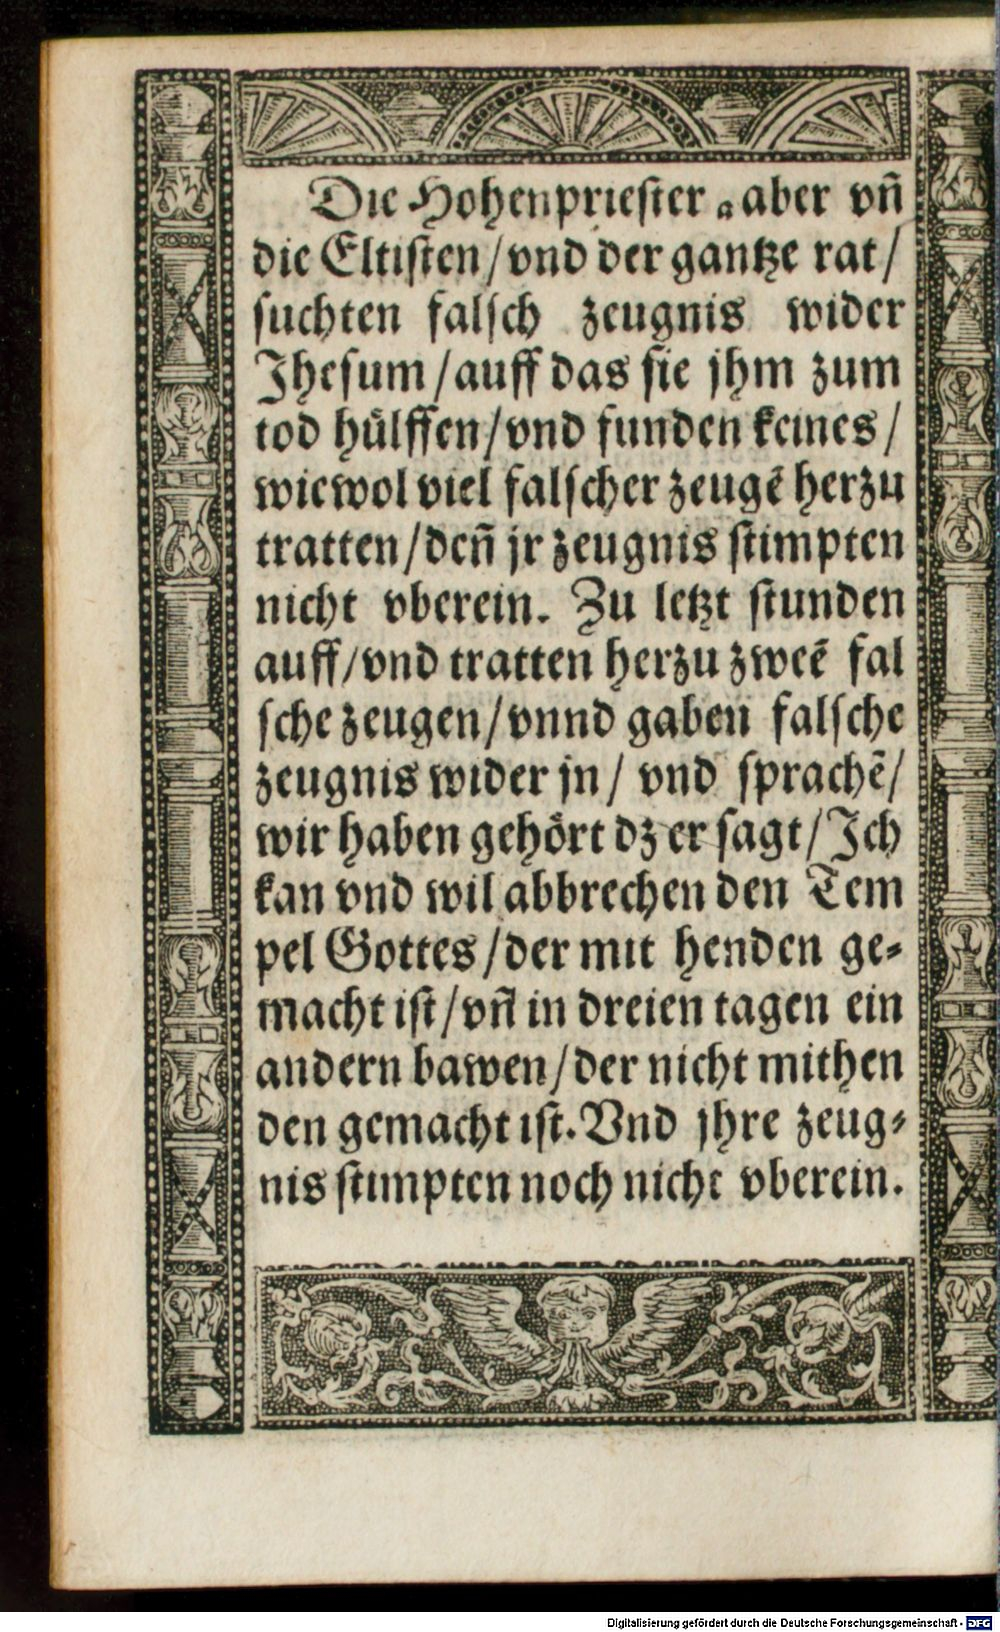 Die Hohenpriester aber vñ
die Eltisten/vnd der gantze rat/
suchten falsch zeugnis wider
Jhesum/auff das sie jhm zum
tod hůlffen/vnd funden keines/
wiewol viel falscher zeugẽ herzu
tratten/deñ jr zeugnis stimpten
nicht vberein. Zu letzt stunden
auff/vnd tratten herzu zweẽ fal
sche zeugen/vnnd gaben falsche
zeugnis wider jn/ vnd sprachẽ/
wir haben gehört dz er sagt/Jch
kan vnd wil abbrechen den Tem
pel Gottes/der mit henden ge-
macht ist/vñ in dreien tagen ein
andern bawen/der nicht mithen
den gemacht ist. Vnd jhre zeug-
nis stimpten noch nicht vberein.
Digitalisierung gefördert durch die Deutsche Forschungsgemeinschaft - DFG